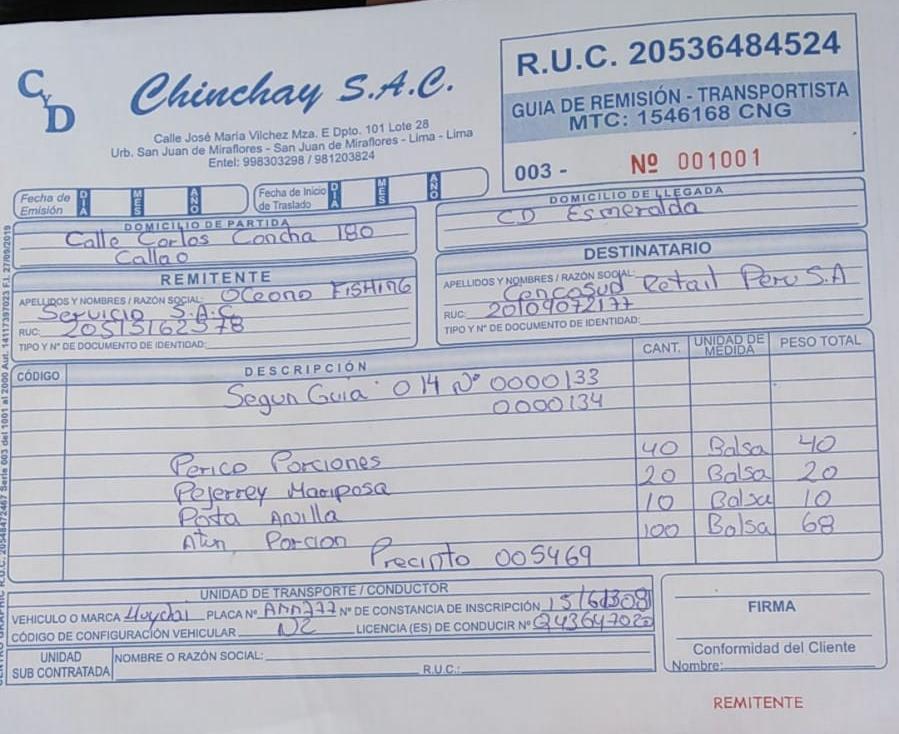 CyD
Chinchay S.A.C.
Calle José María Vilchez Mza. E Dpto. 101 Lote 28
Urb. San Juan de Miraflores - San Juan de Miraflores - Lima - Lima
Entel: 998303298 / 981203824
R.U.C. 20536484524
GUIA DE REMISIÓN - TRANSPORTISTA
MTC: 1546168 CNG
003 - Nº 001001
Fecha de Emisión DIA MES AÑO
Fecha de Inicio de Traslado DIA MES AÑO
DOMICILIO DE PARTIDA
Calle Carlos Concha 180
Callao
DOMICILIO DE LLEGADA
CD Esmeralda
REMITENTE
APELLIDOS Y NOMBRES / RAZÓN SOCIAL: Oceono FISHING
Servicio S.A.C
RUC: 20513162578
TIPO Y Nº DE DOCUMENTO DE IDENTIDAD:
DESTINATARIO
APELLIDOS Y NOMBRES / RAZÓN SOCIAL: Cencosud Retail Peru S.A
RUC: 20109072177
TIPO Y Nº DE DOCUMENTO DE IDENTIDAD:
CÓDIGO DESCRIPCIÓN CANT. UNIDAD DE MEDIDA PESO TOTAL
Segun Guia 014 Nº 0000133
0000134
Perico Porciones 40 Bolsa 40
Pejerrey Mariposa 20 Bolsa 20
Pota Anilla 10 Bolsa 10
Atun Porcion 100 Bolsa 68
Precinto 005469
UNIDAD DE TRANSPORTE / CONDUCTOR
VEHICULO O MARCA Huydai PLACA Nº Nº DE CONSTANCIA DE INSCRIPCIÓN
CÓDIGO DE CONFIGURACIÓN VEHICULAR N2 LICENCIA (ES) DE CONDUCIR Nº Q43647020
UNIDAD SUB CONTRATADA
NOMBRE O RAZÓN SOCIAL:
R.U.C.:
FIRMA
Conformidad del Cliente
Nombre:
REMITENTE
R.U.C. 20548472467 Serie 003 del 1001 al 2000 Aut. 14117397023 F.I. 27/09/2019